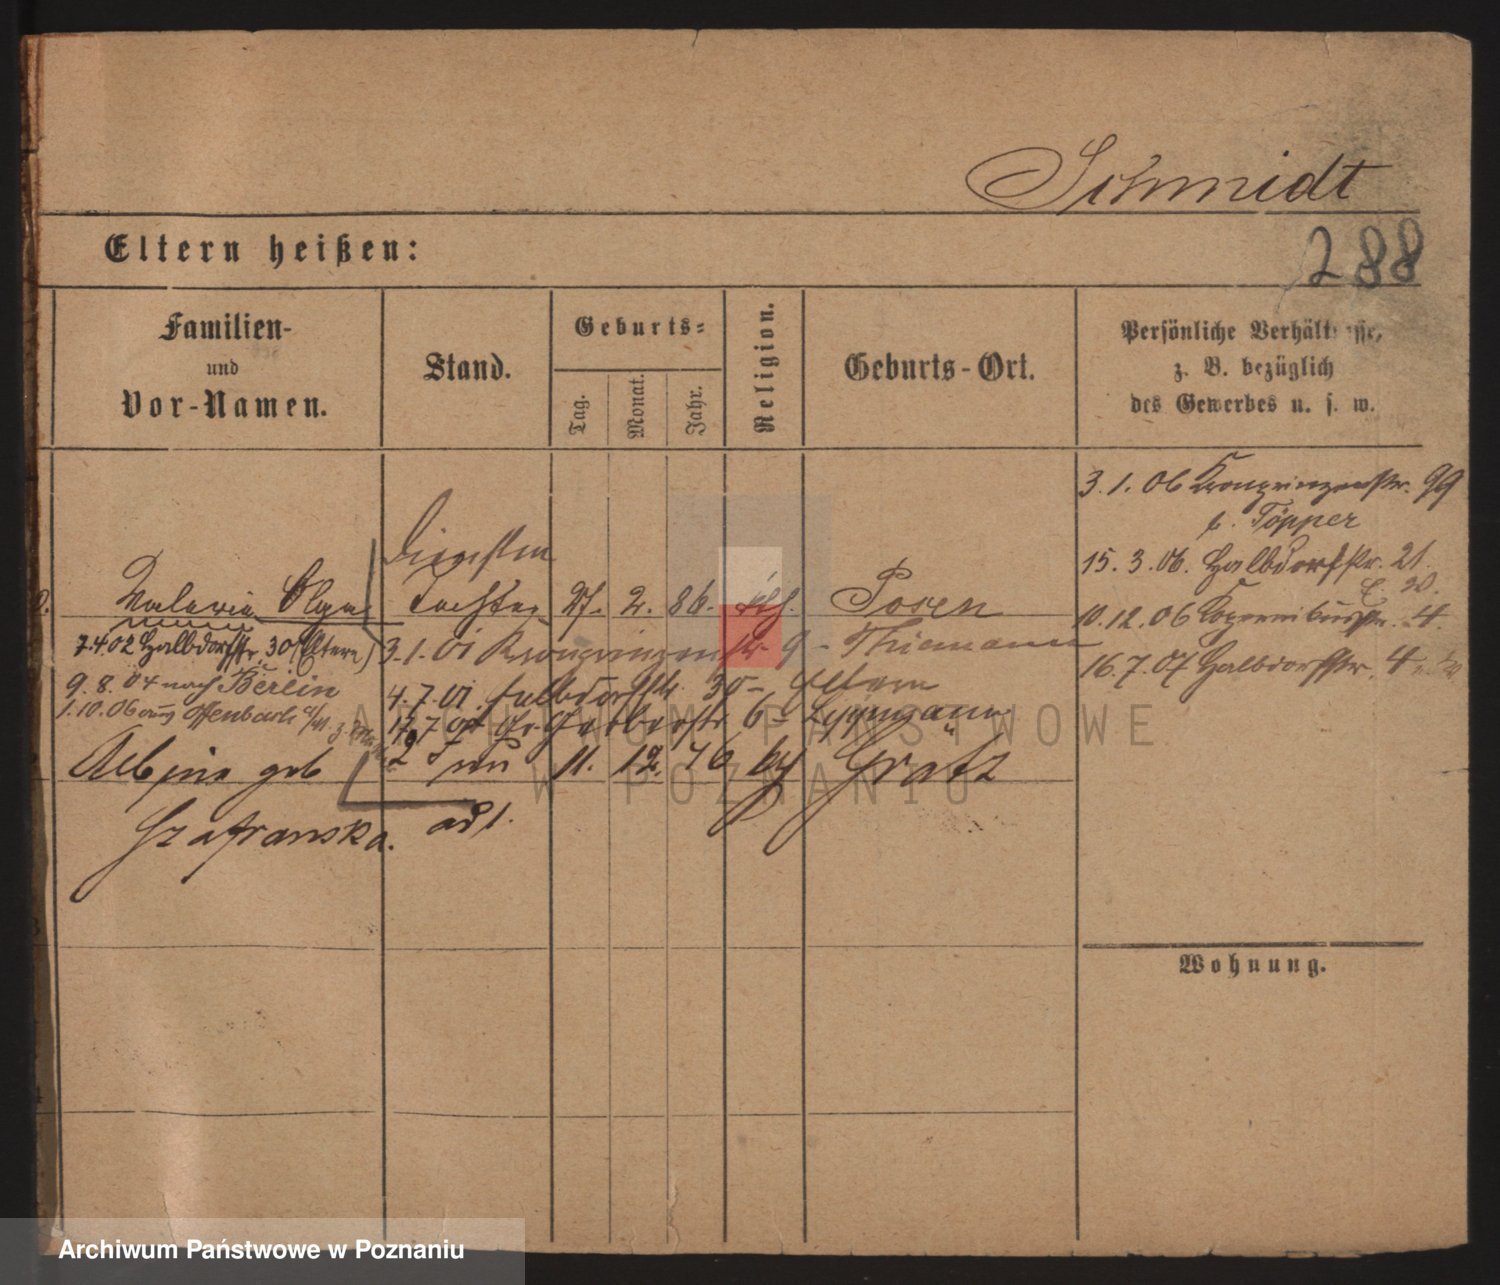 Schmidt
Eltern heißen:
288
Familien-
und
Vor-Namen.
Stand.
Geburts-
Tag.
Monat.
Jahr.
Religion.
Geburts-Ort.
Persönliche Verhältnisse,
z. B. bezüglich
des Gewerbes u. s. w.
3. 1. 06 Kronprinzenstr. 99
b. Töpper
15. 3. 06. Halbdorfstr. 21.
10. 12. 06 Kopernikusstr. 4.
16. 7. 07 Halbdorfstr. 4
Valerie Olga Tochter 27. 2. 86. Posen
7.4.02 Halbdorfstr. 30 (Eltern)
3. 1. 01 Kronprinzenstr. 9 - Thiemann
9. 8. 04 nach Berlin
4. 7. 01. Halbdorfstr. 30 - Eltern
1. 10. 06 aus Offenbach a/M
Gr. Gerberstr. 6 -
Albine geb 11. 12. 76 Grätz
Szafranska. ad 1.
Wohnung.
ARCHIWUM PAŃSTWOWE
W POZNANIU
Archiwum Państwowe w Poznaniu